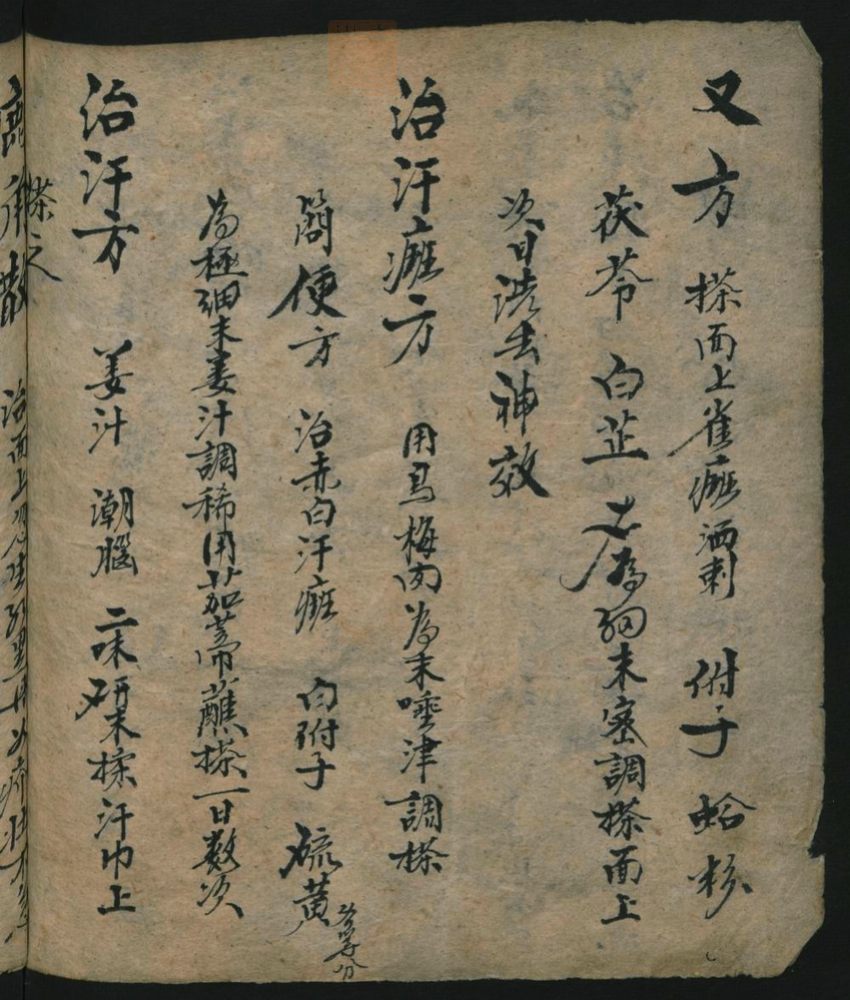 又方 搽面上雀癍酒刺 附子 蛤粉
茯苓 白芷 共為細末蜜調搽面上
次日洗去神效
治汗癍方 用烏梅肉為末唾津調搽
簡便方 治赤白汗癍 白附子 硫黃各等分
為極細末姜汁調稀用茄蒂蘸搽一日数次
治汗方 姜汁 潮腦 二味研末搽汗巾上
搽之
散 治面上